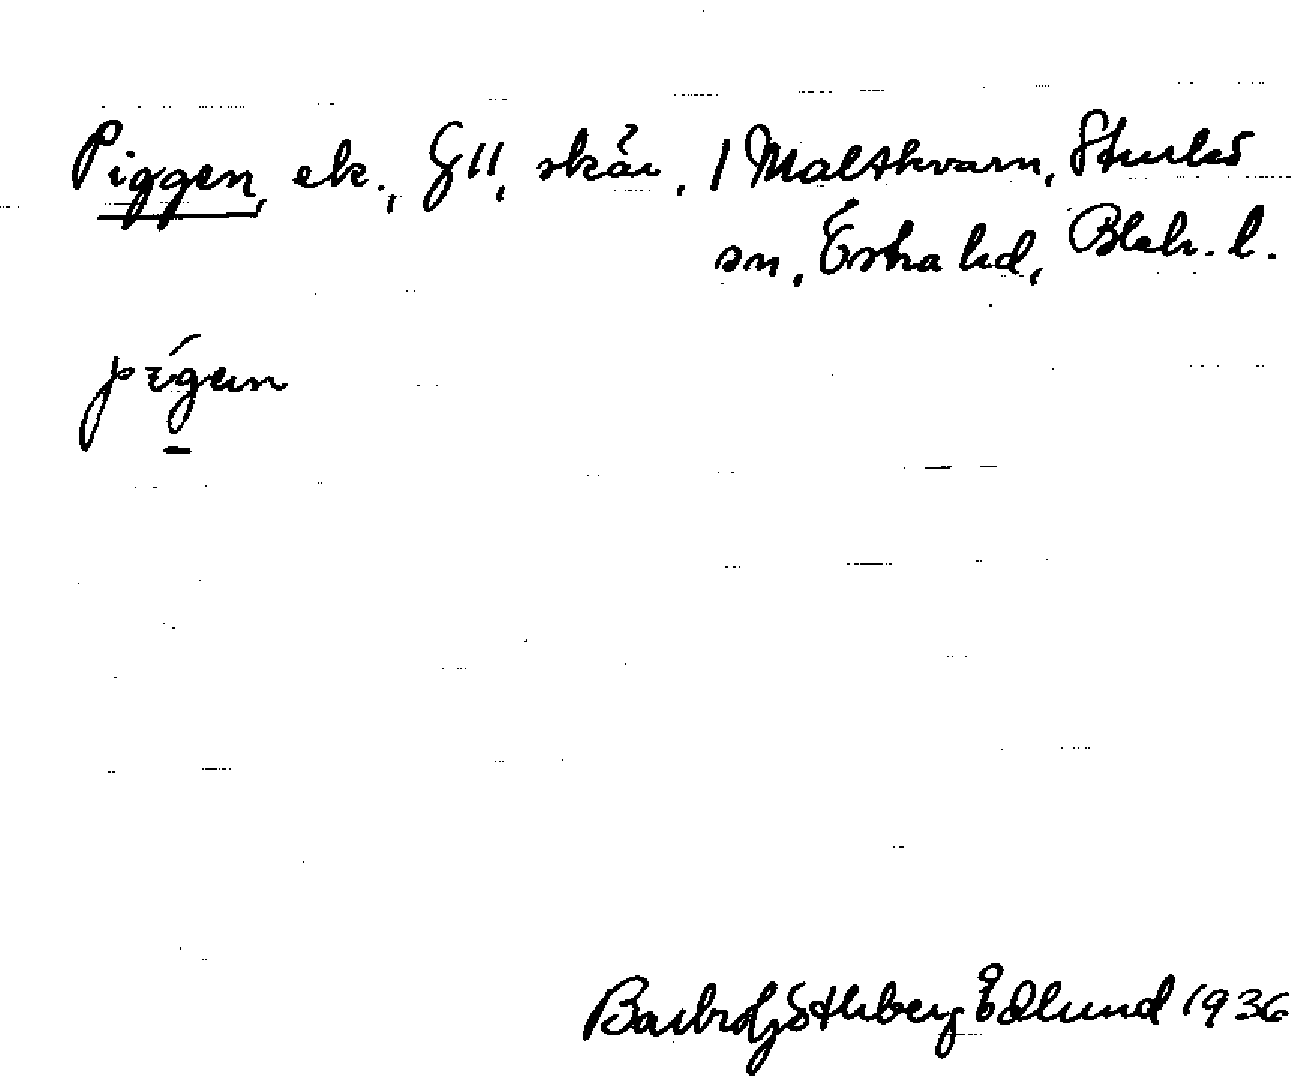 Piggen, ek., G11, skär, 1 Maltkvarn, Sturkö
sn, Östra hd, Blek. l.
pígen
Barbro Götlberg Edlund 1936